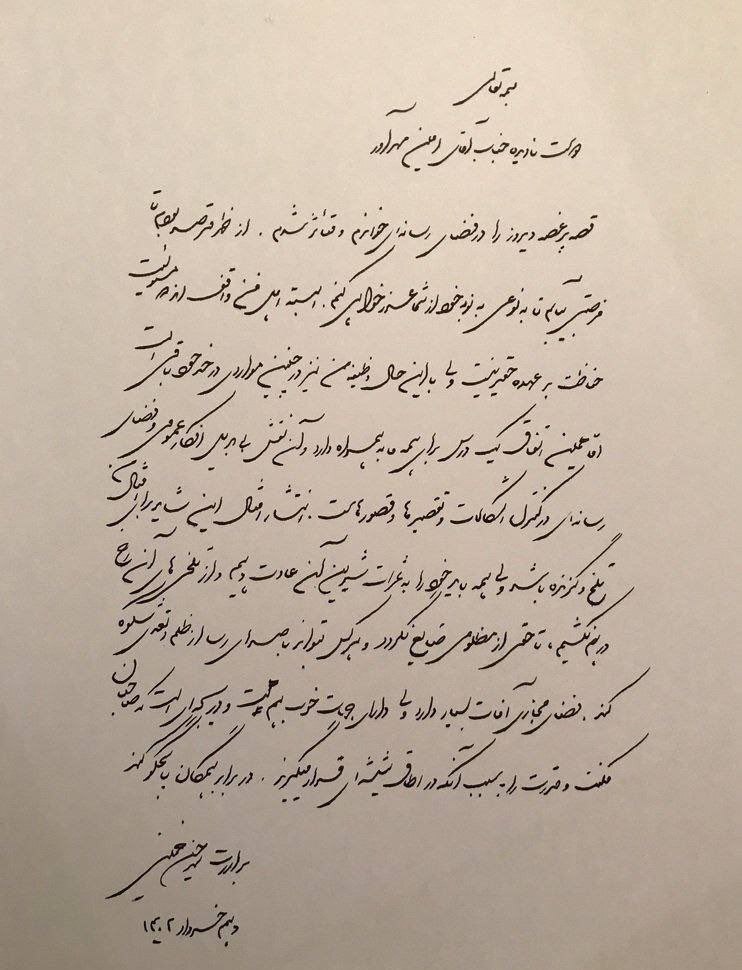 بسمه تعالی
دوست نادیده جناب آقای امین مهرآور
قصه پرغصه دیروز را در فضای رسانه‌ای خواندم و متأثر شدم. از خدا
فرصتی بیابم تا به نوعی به نوبه خود از شما عذرخواهی کنم. البته اهل فن واقف‌اند مسئولیت
حفاظت بر عهده حقیر نیست ولی با این حال وظیفه من نیز در چنین مواردی در حد خود باقی است
امّا همین اتفاق یک درس برای همه ما به همراه دارد و آن نقش بی بدیل افکار عمومی و فضای
رسانه‌ای در کنترل اشکالات و تقصیرها و قصورهاست. انتشار امثال این شاید برای امثال من
تلخ و گزنده باشد ولی همه باید خود را به ثمرات شیرین آن عادت دهیم و از تلخی های آن رخ
درهم نکشیم، تا حقی از مظلومی ضایع نگردد و هر کس بتواند با صدای رسا از ظلم و تعدی شکوه
کند. فضای مجازی آفات بسیار دارد ولی دارای جهات خوب هم هست و دریچه‌ای است که صاحبان
مکنت و قدرت را به سبب آنکه در اطاق شیشه‌ای قرار میگیرند. در برابر همگان پاسخگو کند
برادرت سید حسن خمینی
دهم خرداد ۱۴۰۲